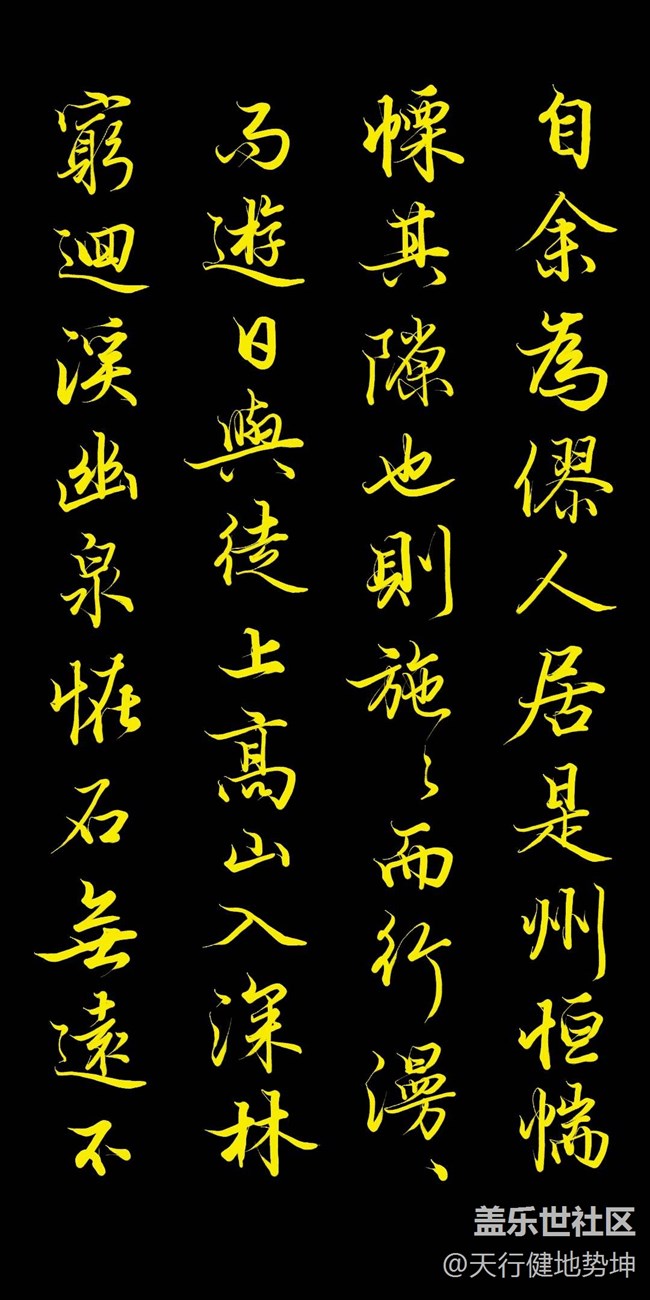 自余為僇人居是州恒惴
慄其隙也則施〻而行漫〻
而遊日與徒上高山入深林
窮迴溪幽泉恠石無遠不
盖乐世社区
@天行健地势坤